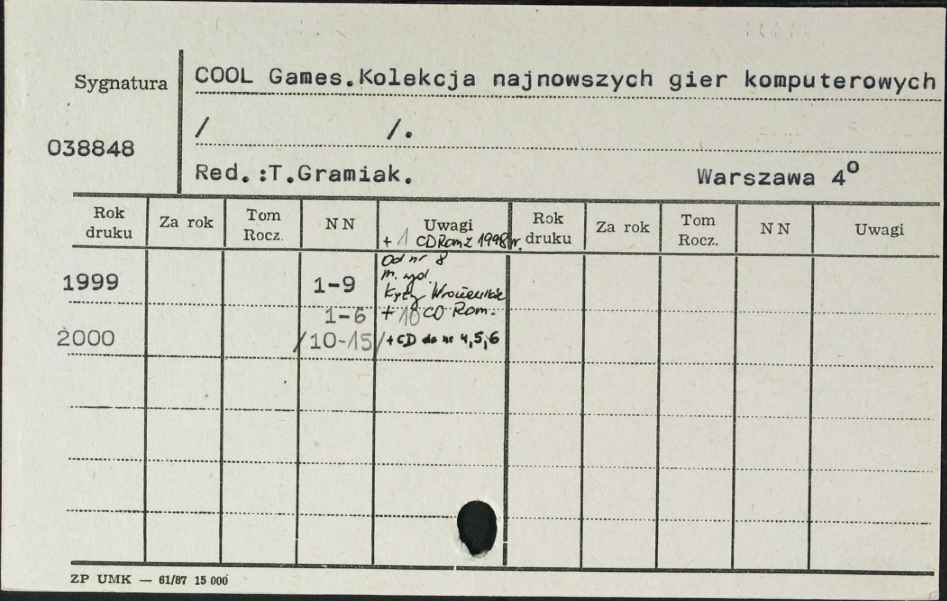 Sygnatura
COOL Games.Kolekcja najnowszych gier komputerowych
/ /.
038848
Red.:T.Gramiak. Warszawa 4º
Rok druku Za rok Tom Rocz. NN Uwagi Rok druku Za rok Tom Rocz. NN Uwagi
+ 1 CD Rom z 1998 r.
Od nr 8
1999 1-9 m. wyd.
Kąty Wrocławskie
1-6 + 10 CD Rom.
2000 /10-15/ + CD do nr 4,5,6
ZP UMK — 61/87 15 000